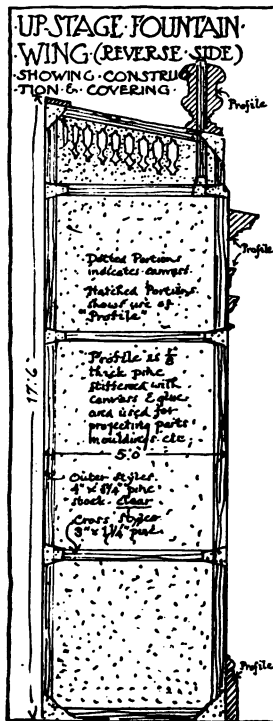 ·UP·STAGE·FOUNTAIN·
WING·(REVERSE·SIDE)
·SHOWING·CONSTRUC
TION·&·COVERING·
Profile
Profile
Dotted Portions
indicates canvas.
Hatched Portions
shows use of
"Profile"
Profile is
thick pine
stiffened with
canvas & glue
and used for
projecting parts
mouldings etc,
17'6"
5'0"
Outer Styles
4" x 1¼" pine
stock clear
Cross Styles
3" x 1¼" pine
Profile